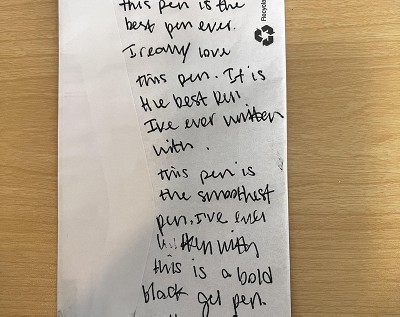 this pen is the
best pen ever.
I really love
this pen. It is
the best pen
I've ever written
with.
this pen is
the smoothest
pen, I've ever
written with
this is a bold
black gel pen.
Recycla